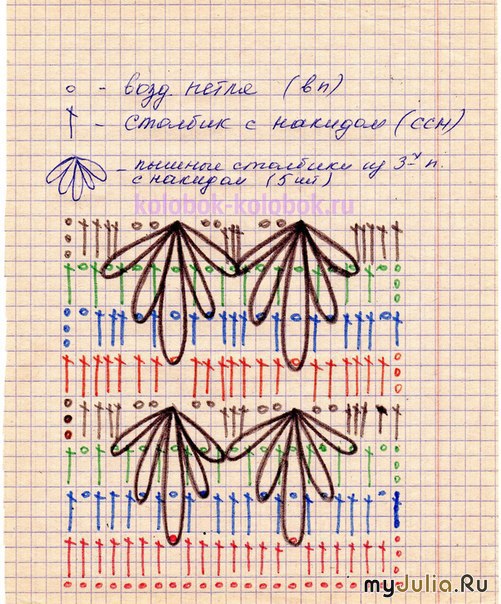 о - возд. петля (вп)
† - столбик с накидом (ссн)
- пышные столбики из 3-х п.
с накидом (5 шт)
kolobok-kolobok.ru
myJulia.Ru